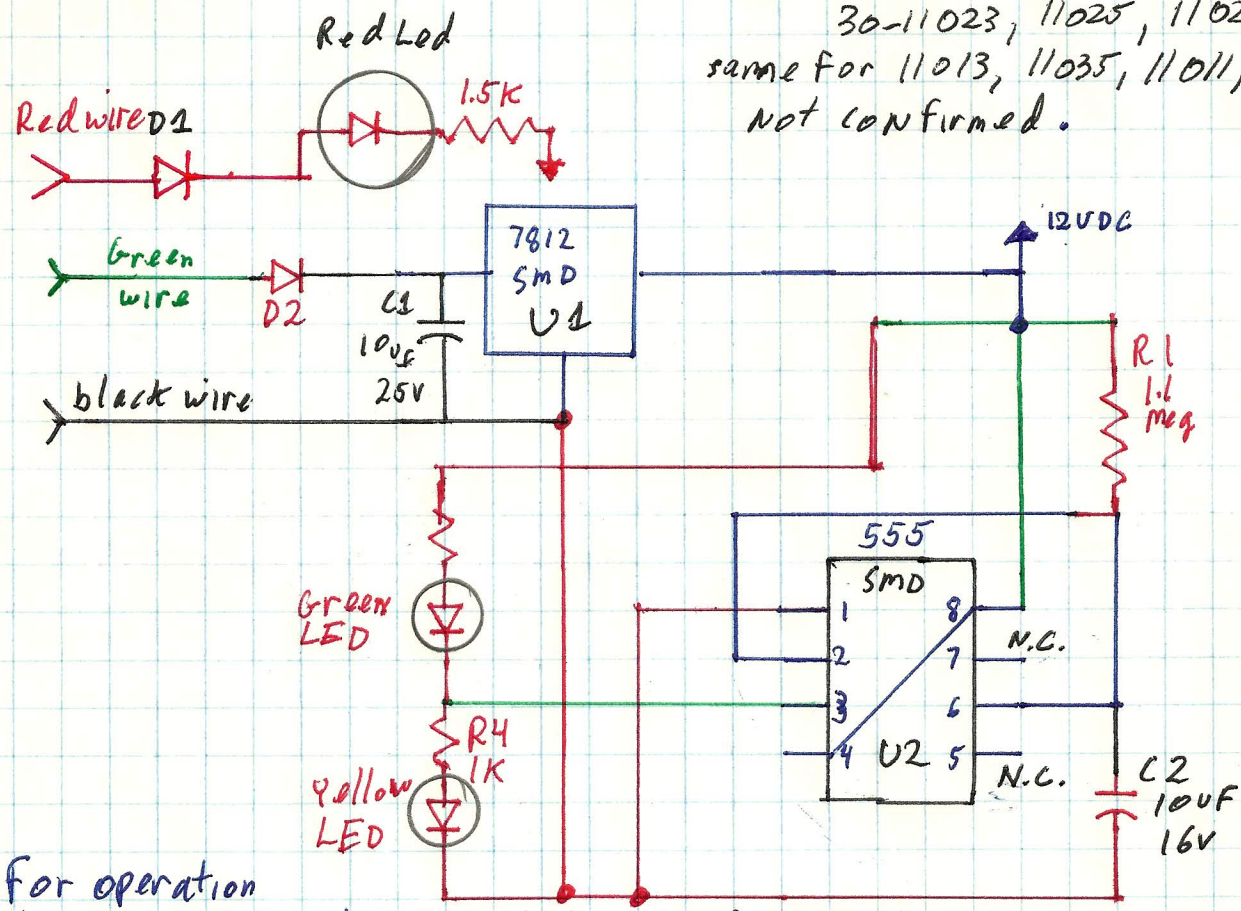 30-11023, 11025, 1102
same for 11013, 11035, 11011,
Not confirmed.
Red Led
1.5K
Red wire D1
Green
wire
D2
C1
10uf
25V
7812
SMD
U1
12VDC
black wire
R1
1.1
Meg
555
SMD
1
2
3
4
8
7
6
5
U2
N.C.
N.C.
Green
LED
R4
1K
Yellow
LED
C2
10UF
16V
For operation